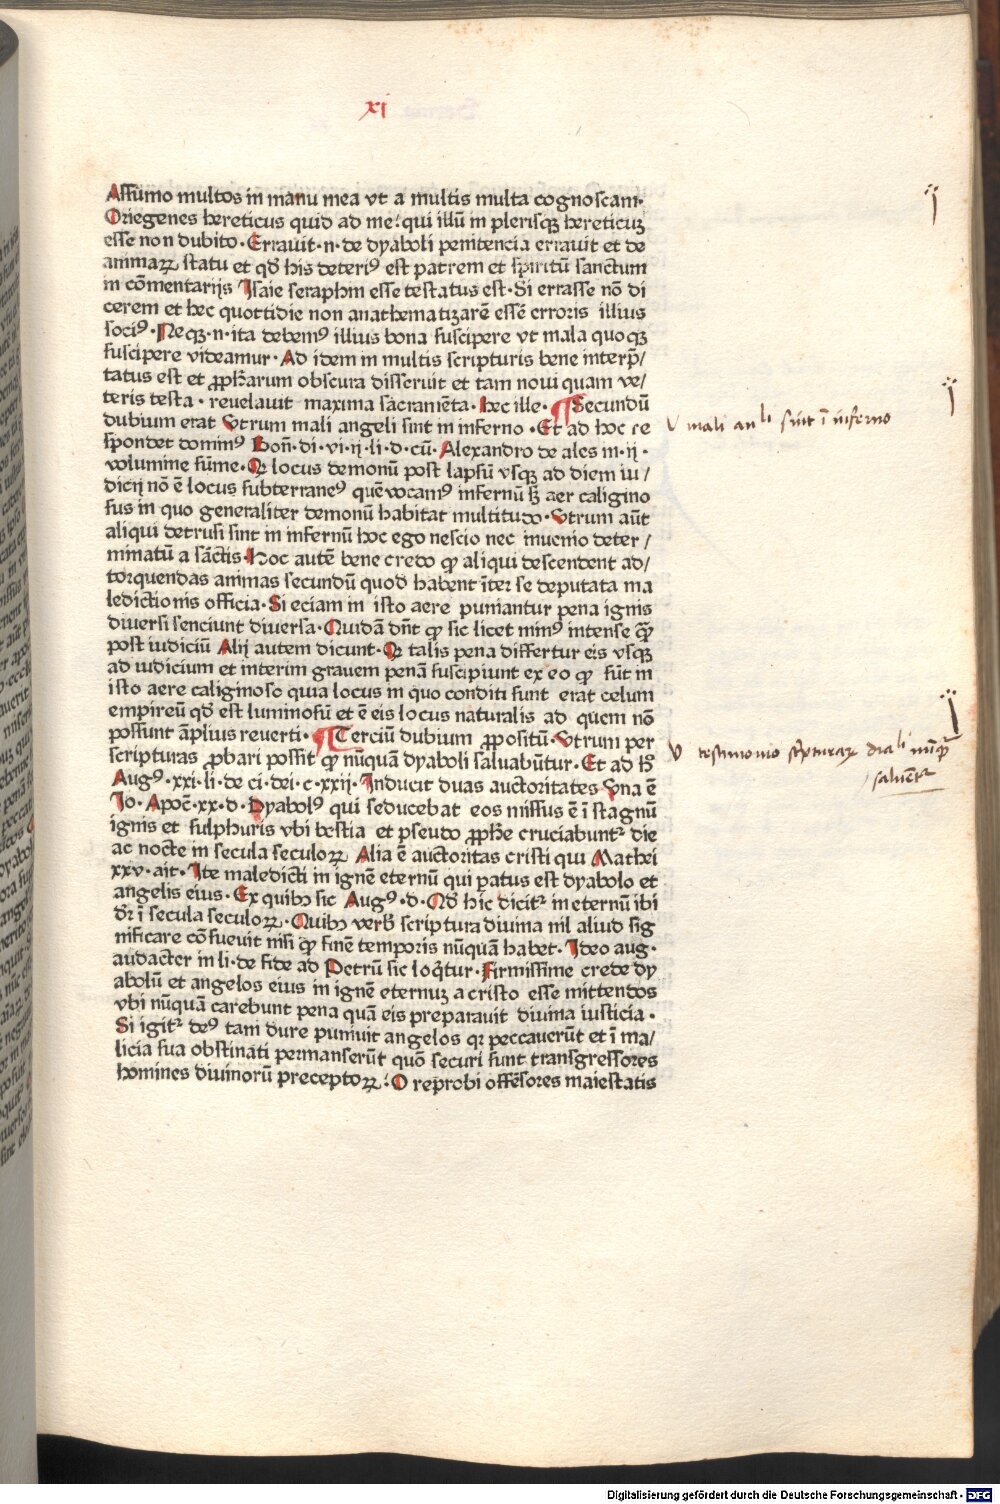 xi
Assūmo multos in manu mea vt a multis multa cognoscant·
Oriegenes hereticus quid ad me? qui illū in plerisqꝫ hereticuꝫ
esse non dubito· Errauit·n·de dyaboli penitencia errauit et de
animaꝝ statu et qd̄ his deteriꝰ est patrem et spiritū sanctum
in cōmentarijs Isaie seraphin esse testatus est· Si errasse nō di
cerem et hec quottidie non anathematizarē essē erroris illius
sociꝰ· Neqꝫ·n·ita debemꝰ illius bona suscipere vt mala quoqꝫ
suscipere videamur· Ad idem in multis scripturis bene interp̄/
tatus est et ꝓph̄arum obscura disseruit et tam noui quam ve/
teris testa· reuelauit maxima sacramēta· hec ille· ¶Secundū
dubium erat Vtrum mali angeli sint in inferno· Et ad hoc re
spondet dominꝰ Bon̄·di·vi·ij·li·d·cū· Alexandro de ales in·ij·
volumine sūme· Qꝛ locus demonū post lapsū vsqꝫ ad diem iu/
dicij nō ē locus subterraneꝰ quē vocamꝰ infernū sꝫ aer caligino
sus in quo generaliter demonū habitat multitudo· Vtrum aūt
aliqui detrusi sint in infernū hoc ego nescio nec inuenio deter/
minatū a sāctis· Hoc autē bene credo ꝙ aliqui descendent ad/
torquendas animas secundū quod habent īter se deputata ma
ledictionis officia· Si eciam in isto aere puniantur pena ignis
diuersi senciunt diuersa· Quidā dn̄t ꝙ sic licet minꝰ intense ꝙ̄
post iudiciū Alij autem dicunt· Qꝛ talis pena differtur eis vsqꝫ
ad iudicium et interim grauem penā suscipiunt ex eo ꝙ sūt in
isto aere caliginoso quia locus in quo conditi sunt erat celum
empireū qd̄ est luminosū et ē eis locus naturalis ad quem nō
possunt āplius reuerti· ¶Terciū dubium ꝓpositū· Vtrum per
scripturas ꝓbari possit ꝙ nūquā dyaboli saluabūtur· Et ad h̄
Augꝰ·xxi·li·de ci·dei·c·xxij· Inducit duas auctoritates Vna ē
Io· Apoc̄·xx·d· Dyabolꝰ qui seducebat eos missus ē ī stagnū
ignis et sulphuris vbi bestia et pseudo ꝓph̄e cruciabunt᷑ die
ac nocte in secula seculoꝝ Alia ē auctoritas cristi qui Mathei
xxv·ait· Ite maledicti in ignē eternū qui patus est dyabolo et
angelis eius· Ex quibꝫ sic Augꝰ·d· Qd̄ hic dicit᷑ in eternū ibi
dr̄ ī secula seculoꝝ· Quibꝫ verb̄ scriptura diuina nil aliud sig
nificare cōsueuit nisi ꝙ finē temporis nūquā habet· Ideo aug·
audacter in li·de fide ad Petrū sic loq̄tur· Firmissime crede dy
abolū et angelos eius in ignē eternuꝫ a cristo esse mittendos
vbi nūquā carebunt pena quā eis preparauit diuina iusticia·
Si igit᷑ deꝰ tam dure puniuit angelos qꝛ peccauerūt et ī ma/
licia sua obstinati permanserūt quō securi sunt transgressores
homines diuinorū preceptoꝝ? O reprobi offēsores maiestatis
V mali anli sint ī inferno
V testimonio sc̄pturaꝝ diali nūqꝫ
saluēt᷑
Digitalisierung gefördert durch die Deutsche Forschungsgemeinschaft - DFG